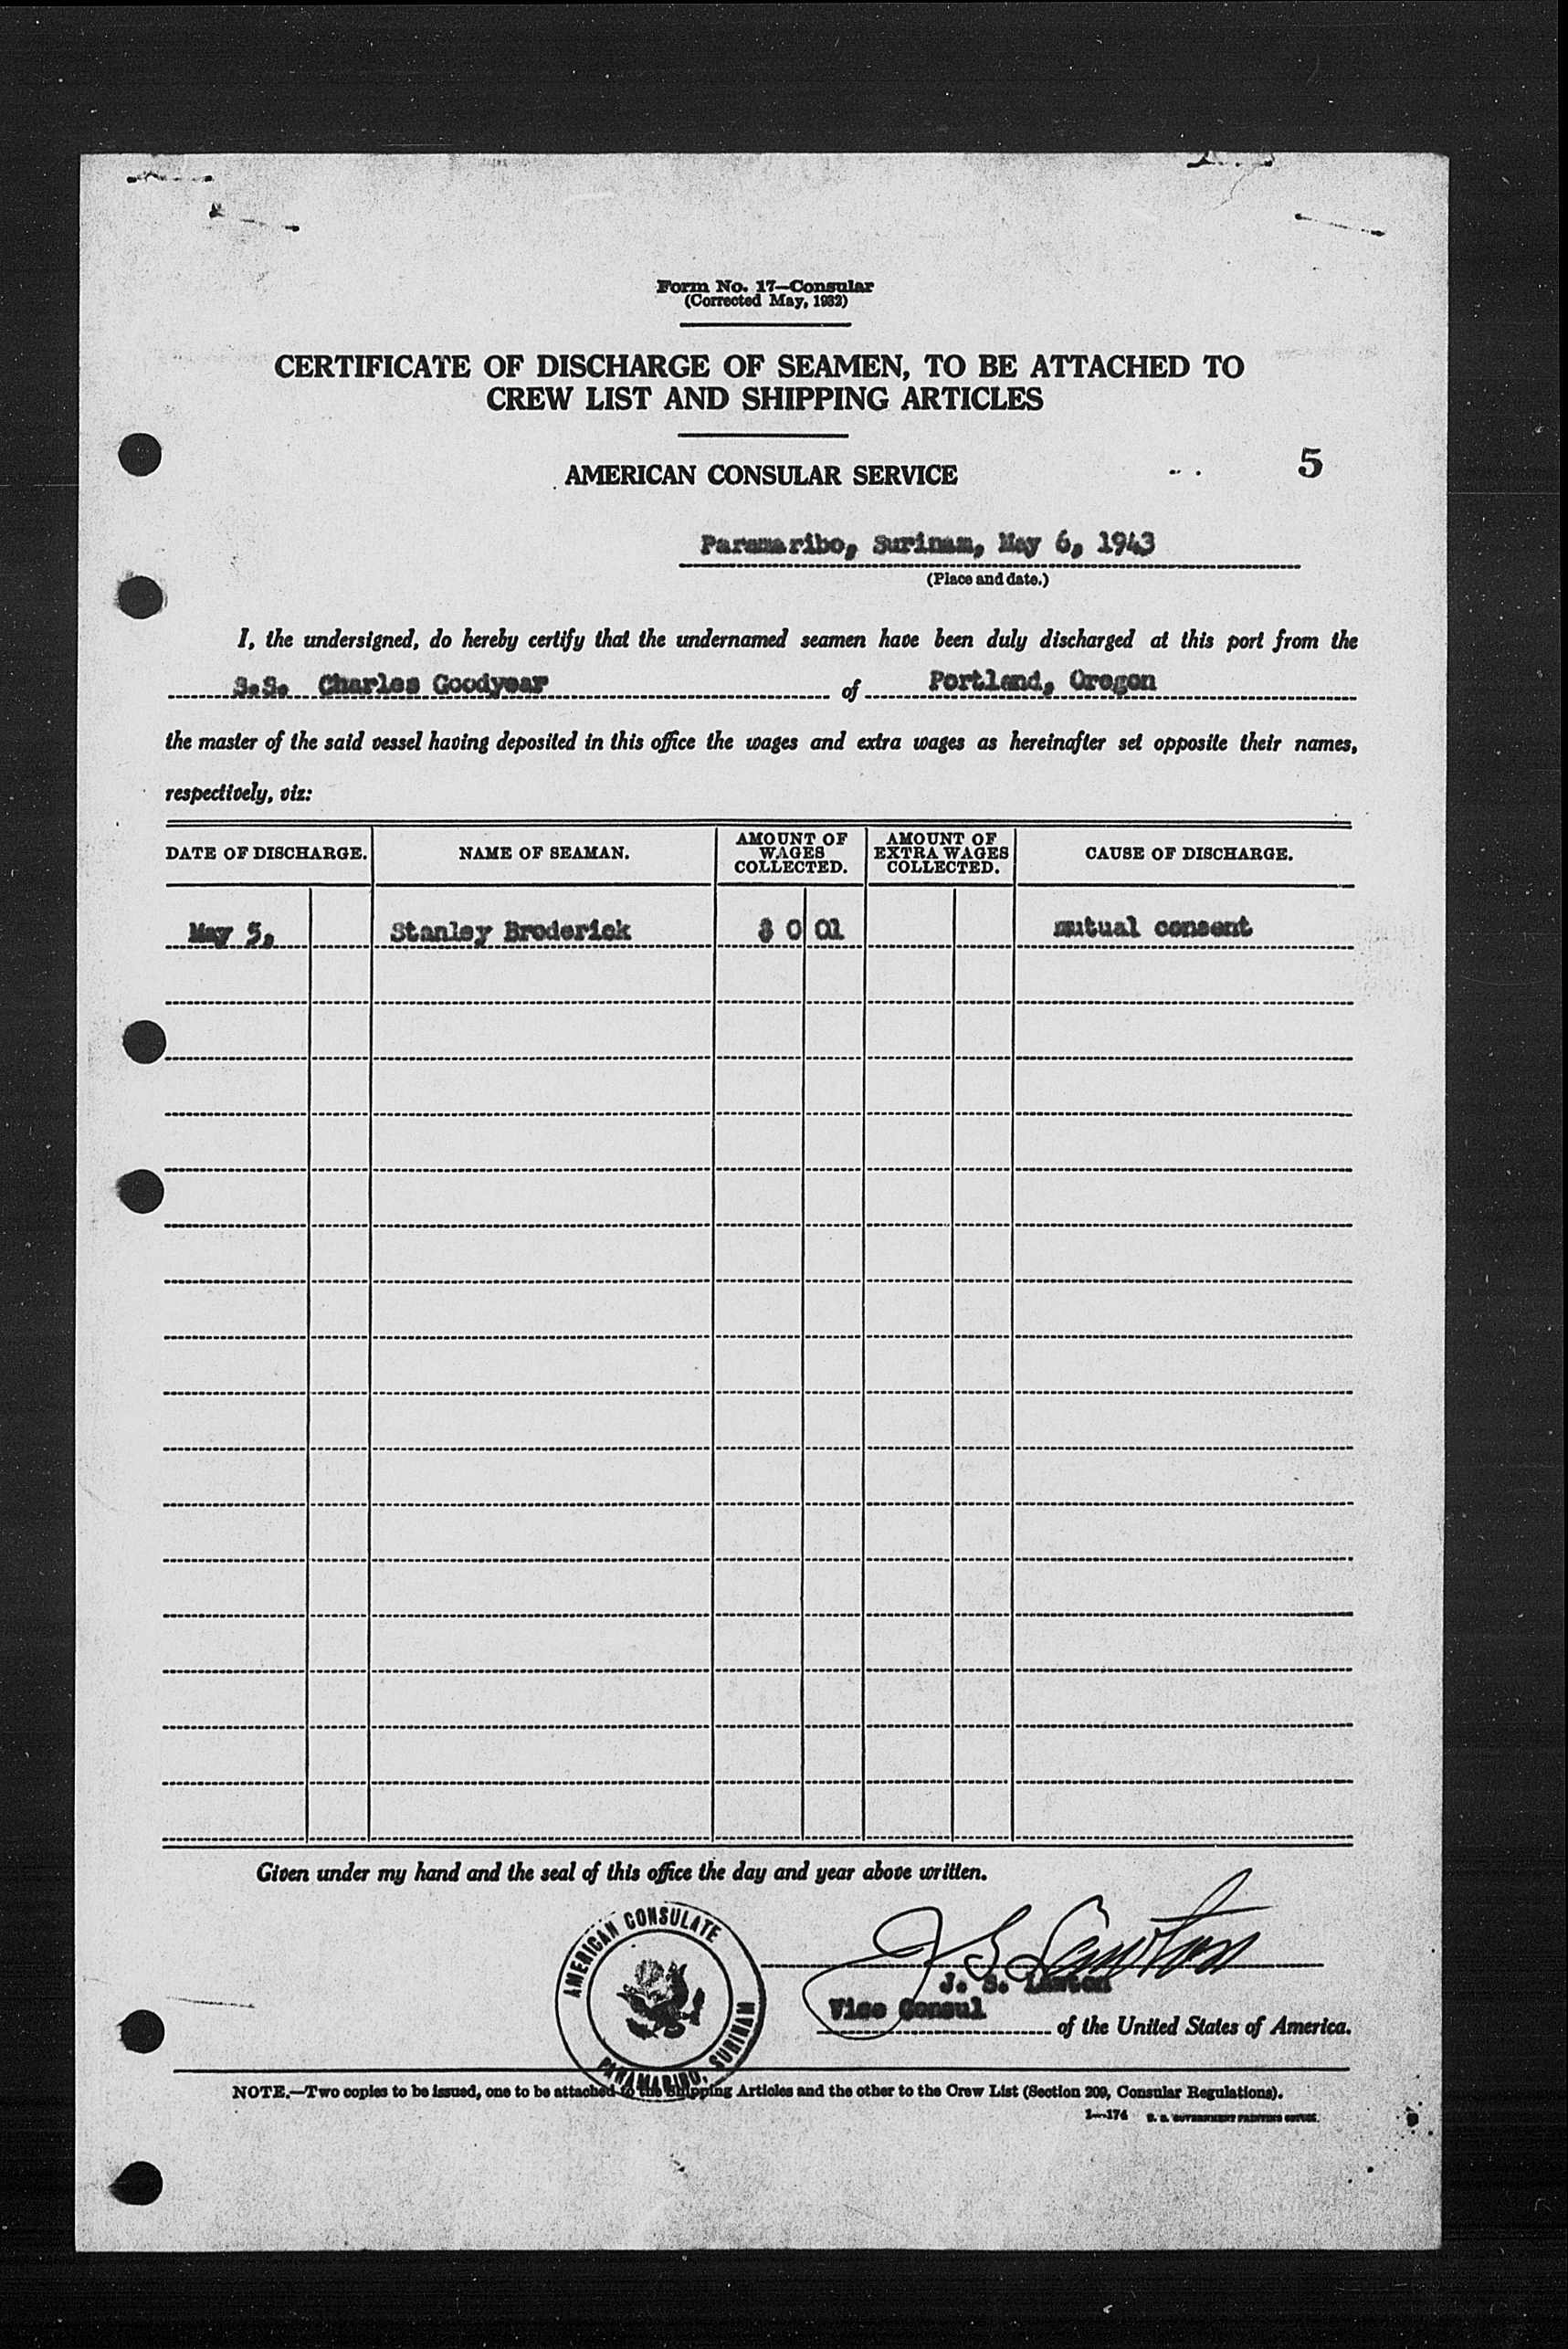 Form No. 17—Consular
(Corrected May, 1932)
CERTIFICATE OF DISCHARGE OF SEAMEN, TO BE ATTACHED TO
CREW LIST AND SHIPPING ARTICLES
AMERICAN CONSULAR SERVICE
5
Paramaribo, Surinam, May 6, 1943
(Place and date.)
I, the undersigned, do hereby certify that the undernamed seamen have been duly discharged at this port from the
S.S. Charles Goodyear of Portland, Oregon
the master of the said vessel having deposited in this office the wages and extra wages as hereinafter set opposite their names,
respectively, viz:
DATE OF DISCHARGE. NAME OF SEAMAN. AMOUNT OF WAGES COLLECTED. AMOUNT OF EXTRA WAGES COLLECTED. CAUSE OF DISCHARGE.
May 5, Stanley Broderick $ 0 01 mutual consent
Given under my hand and the seal of this office the day and year above written.
AMERICAN CONSULATE
PARAMARIBO, SURINAM
J S Lawton
J. S. Lawton
Vice Consul of the United States of America.
NOTE.—Two copies to be issued, one to be attached to the Shipping Articles and the other to the Crew List (Section 209, Consular Regulations).
1—174 U. S. GOVERNMENT PRINTING OFFICE